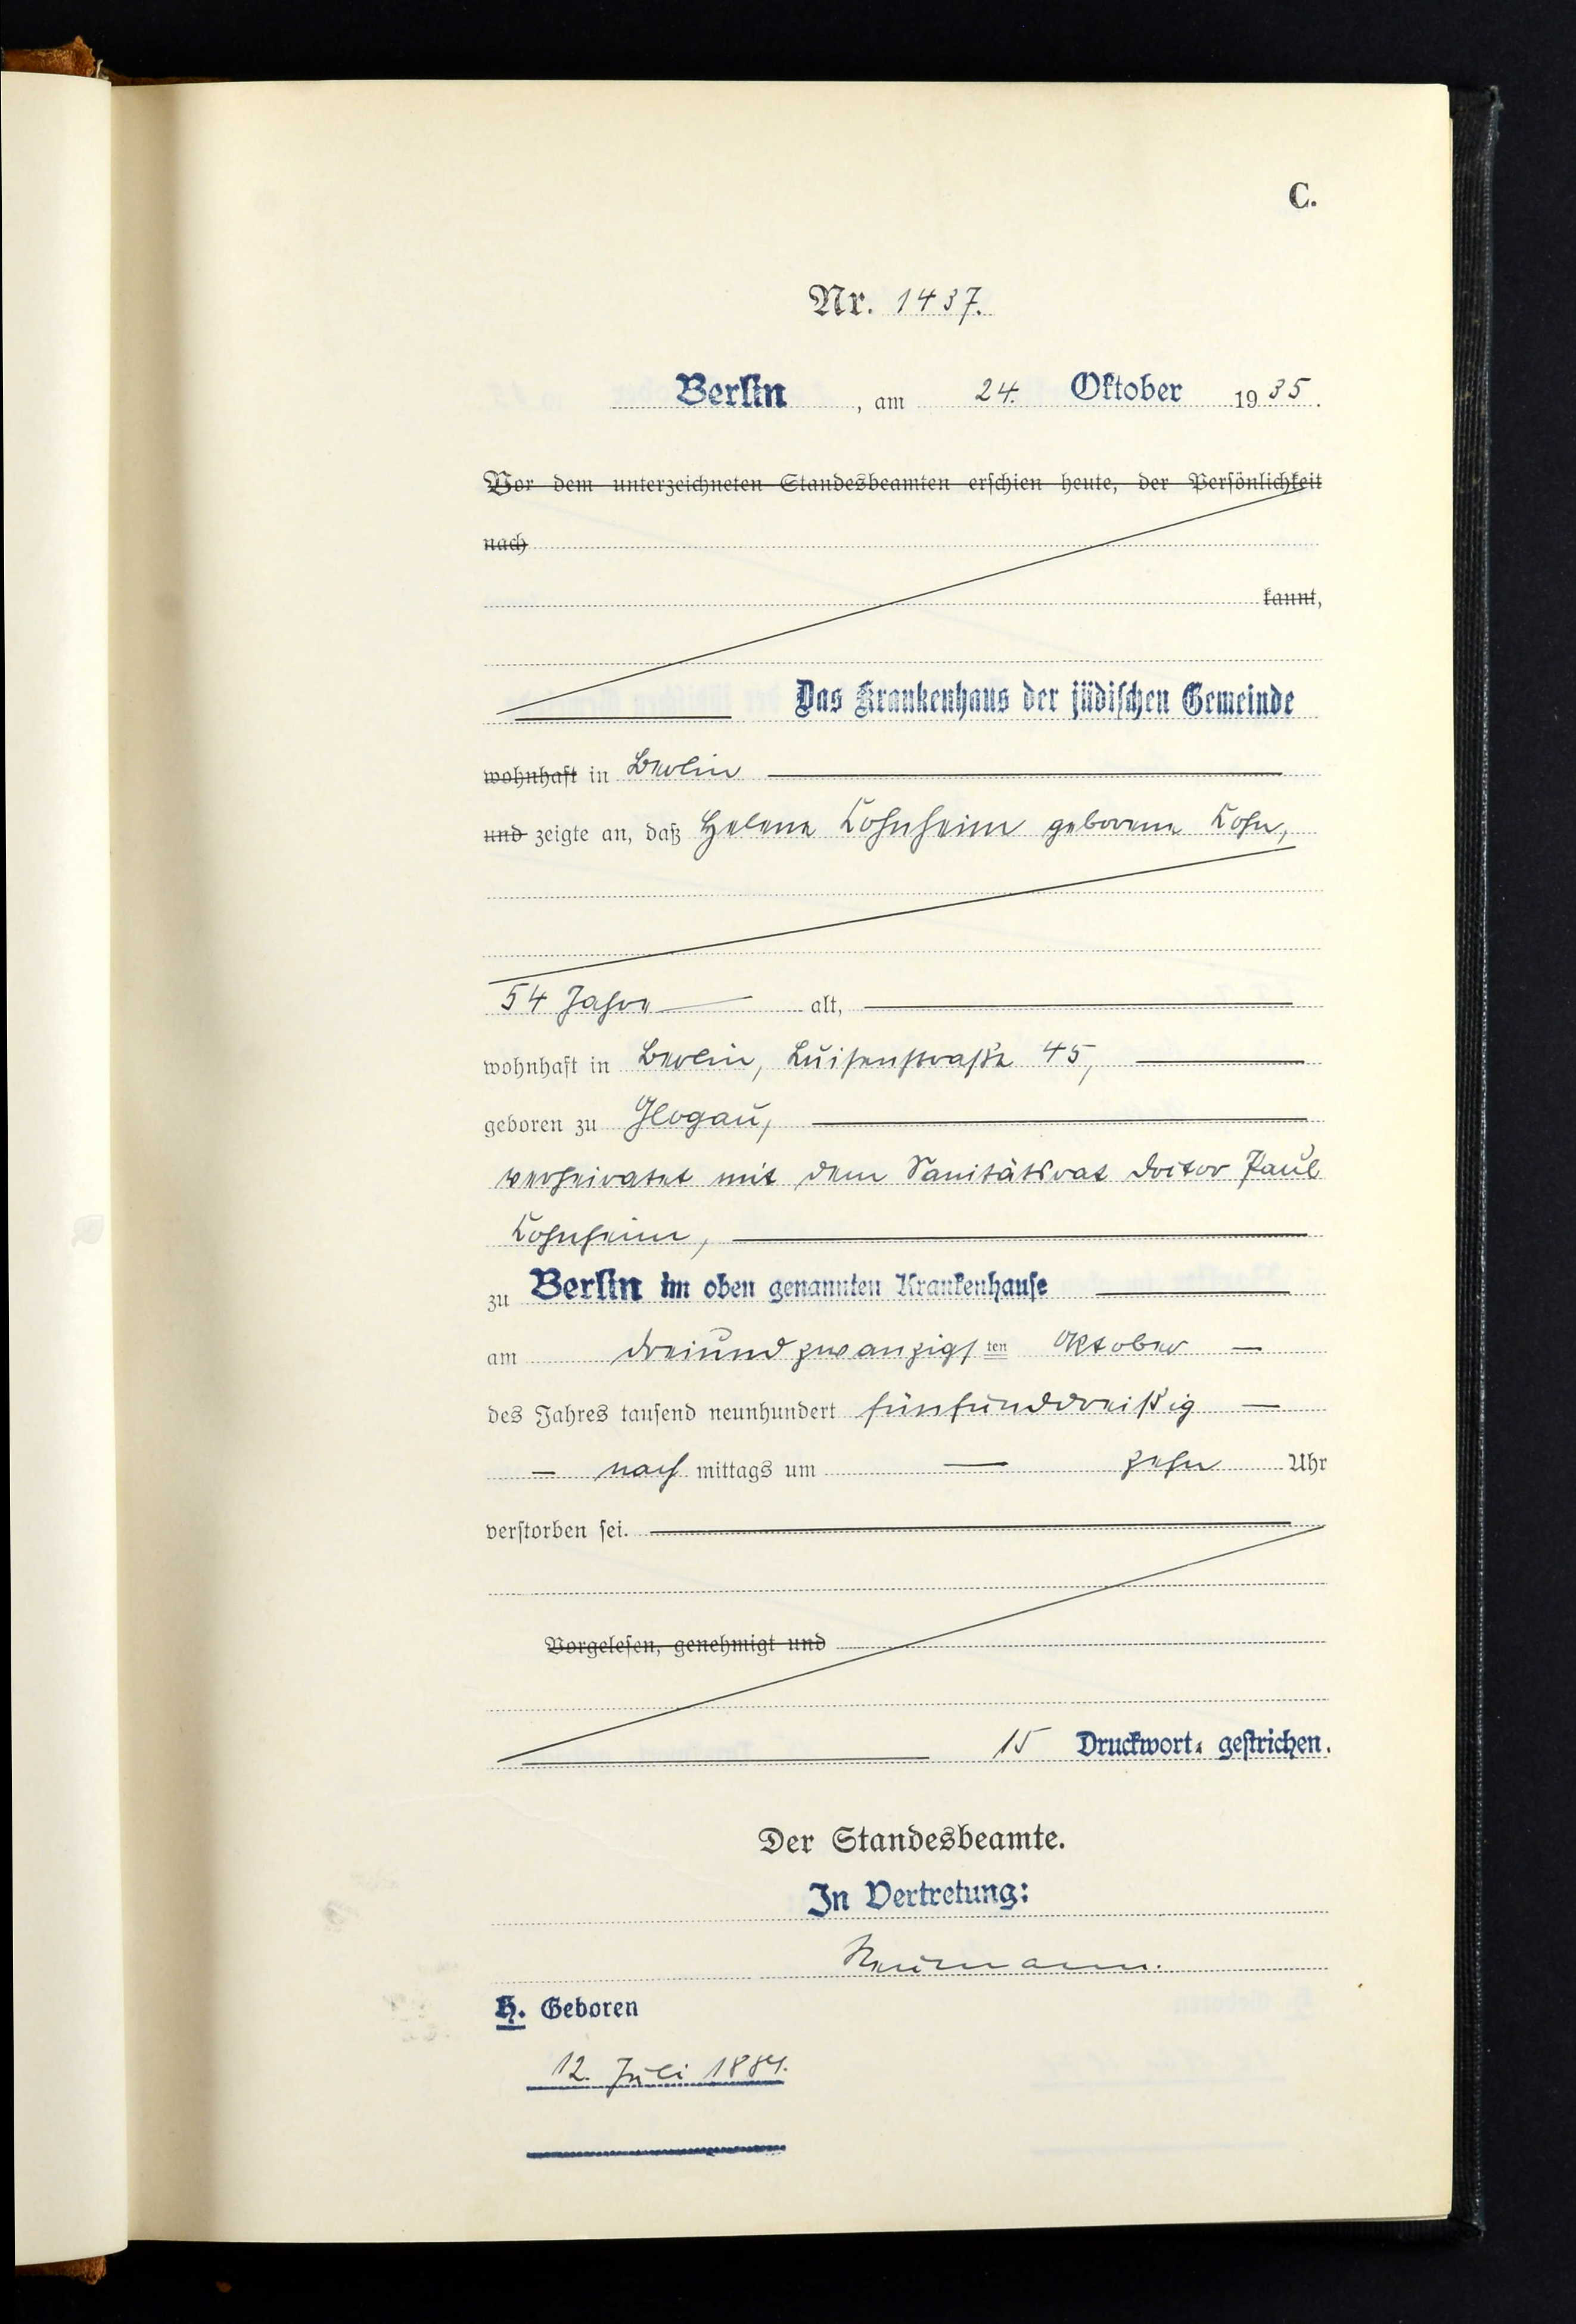 C.
Nr. 1437.
Berlin, am 24. Oktober 1935.
Vor dem unterzeichneten Standesbeamten erschien heute, der Persönlichkeit
nach
kannt,
Das Krankenhaus der jüdischen Gemeinde
wohnhaft in Berlin
und zeigte an, daß Helene Cohnheim geborene Cohn,
54 Jahre alt,
wohnhaft in Berlin, Luisenstraße 45,
geboren zu Glogau,
verheiratet mit dem Sanitätsrat Doktor Paul
Cohnheim,
zu Berlin im oben genannten Krankenhause
am dreiundzwanzigsten Oktober
des Jahres tausend neunhundert fünfunddreißig
nach mittags um zehn Uhr
verstorben sei.
Vorgelesen, genehmigt und
15 Druckwort- gestrichen.
Der Standesbeamte.
In Vertretung:
Neumann.
H. Geboren
12. Juli 1881.